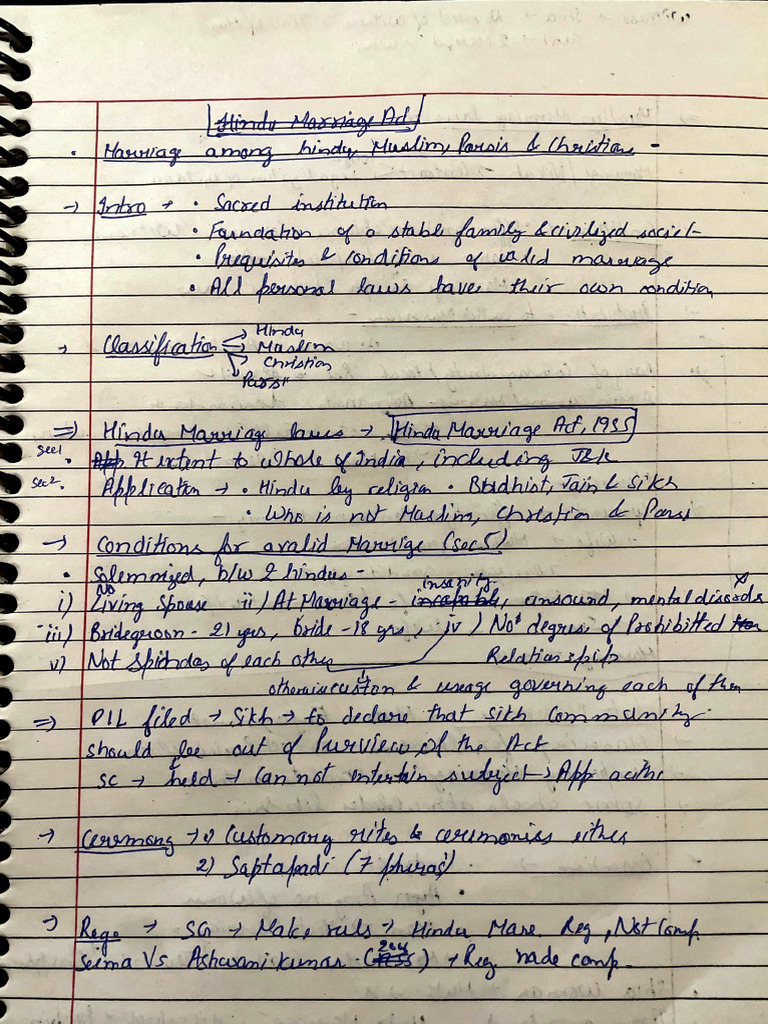 Hindu Marriage Act
• Marriage among hindu, Muslim, Parsis & Christian -
→ Intro → • Sacred institution
• Foundation of a stable family & civilized societ
• Prequisites & conditions of valid marriage
• All personal laws have their own condition
→ Classification → Hindu
→ Muslim
→ Christian
→ Parsi
⇒ Hindu Marriage laws → Hindu Marriage Act, 1955
sec1 • It extent to whole of India, including J&K
sec2 • Application → • Hindu by religion • Buddhist, Jain & Sikh
• Who is not Muslim, Christian & Parsi
→ Conditions for a valid Marrige (sec 5)
• Solemnized, b/w 2 hindus -
i) No Living Spouse ii) At Marriage - insanity, unsound, mental disords
iii) Bridegroon - 21 yrs, bride - 18 yrs, iv) Not degres of Prohibitted
v) Not Spindas of each other Relationships
otherwise custom & useage governing each of them
⇒ PIL filed → Sikh → to declare that sikh community
should be out of Purview of the Act
SC → held → Can not entertain subject → App
→ Ceremony → 1) Customary rites & ceremonies either
2) Saptapadi (7 pheras)
→ Rego → SG → Make ruls → Hindu Mare. Reg, Not Comp.
Seema Vs Ashwani kumar - () → Reg. made comp.